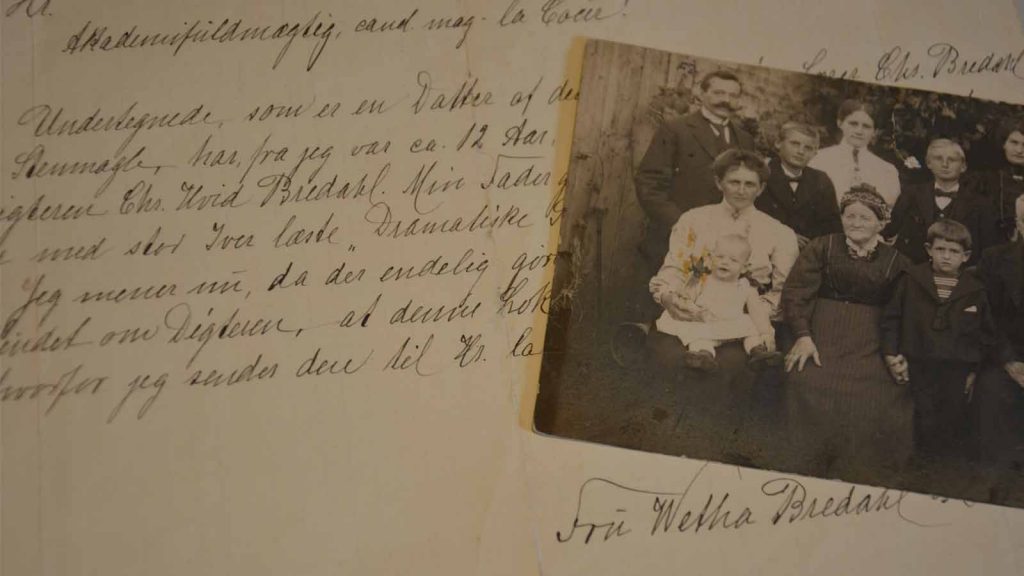 Hr.
Akademifuldmægtig, cand. mag. la Cour!
Chs. Bredahl
Undertegnede, som er en Datter af de
Stenmagle, har, fra jeg var ca. 12 Aar,
igteren Chr. Hvid Bredahl. Min Fader
med stor Iver læste "Dramatiske
Jeg mener nu, da der endelig gør
indet om Digteren, at denne Lok
hvorfor jeg sender den til Hr. la
Frú Wetha Bredahl